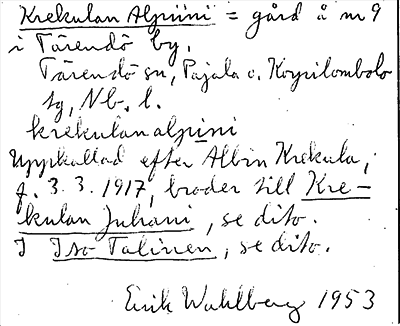 Krekulan Alpiini = gård å nr 9
i Tärendö by.
Tärendö sn, Pajala o. Korpilombolo
tg, Nb. l.
krekulanalpiini
Uppkallad efter Albin Krekula,
f. 3. 3. 1917, broder till Kre-
kulan Juhani, se dito.
I Iso Talinen, se dito.
Erik Wahlberg 1953